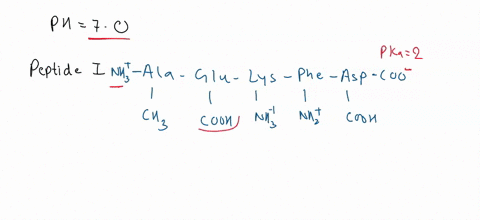 PH = 7.0
PKa=2
Peptide I NH₃⁺-Ala - Glu - Lys - Phe - Asp - COO⁻
CH₃ COOH NH₃⁻¹ NH₂⁺ COOH